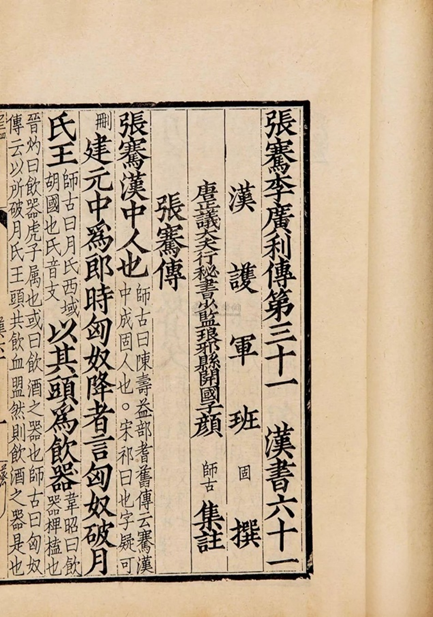 張騫李廣利傳第三十一　漢書六十一
漢護軍班固撰
唐正議大夫行秘書少監琅邪縣開國子顏師古集註
張騫傳
張騫漢中人也師古曰陳壽益部耆舊傳云騫漢
中成固人也。宋祁曰也字疑可
刪建元中爲郎時匈奴降者言匈奴破月
氏王師古曰月氏西域
胡國也氏音支以其頭爲飲器韋昭曰飲
器椑榼也
晉灼曰飲器虎子属也或曰飲酒之器也師古曰匈奴
傳云以所破月氏王頭共飲血盟然則飲酒之器是也